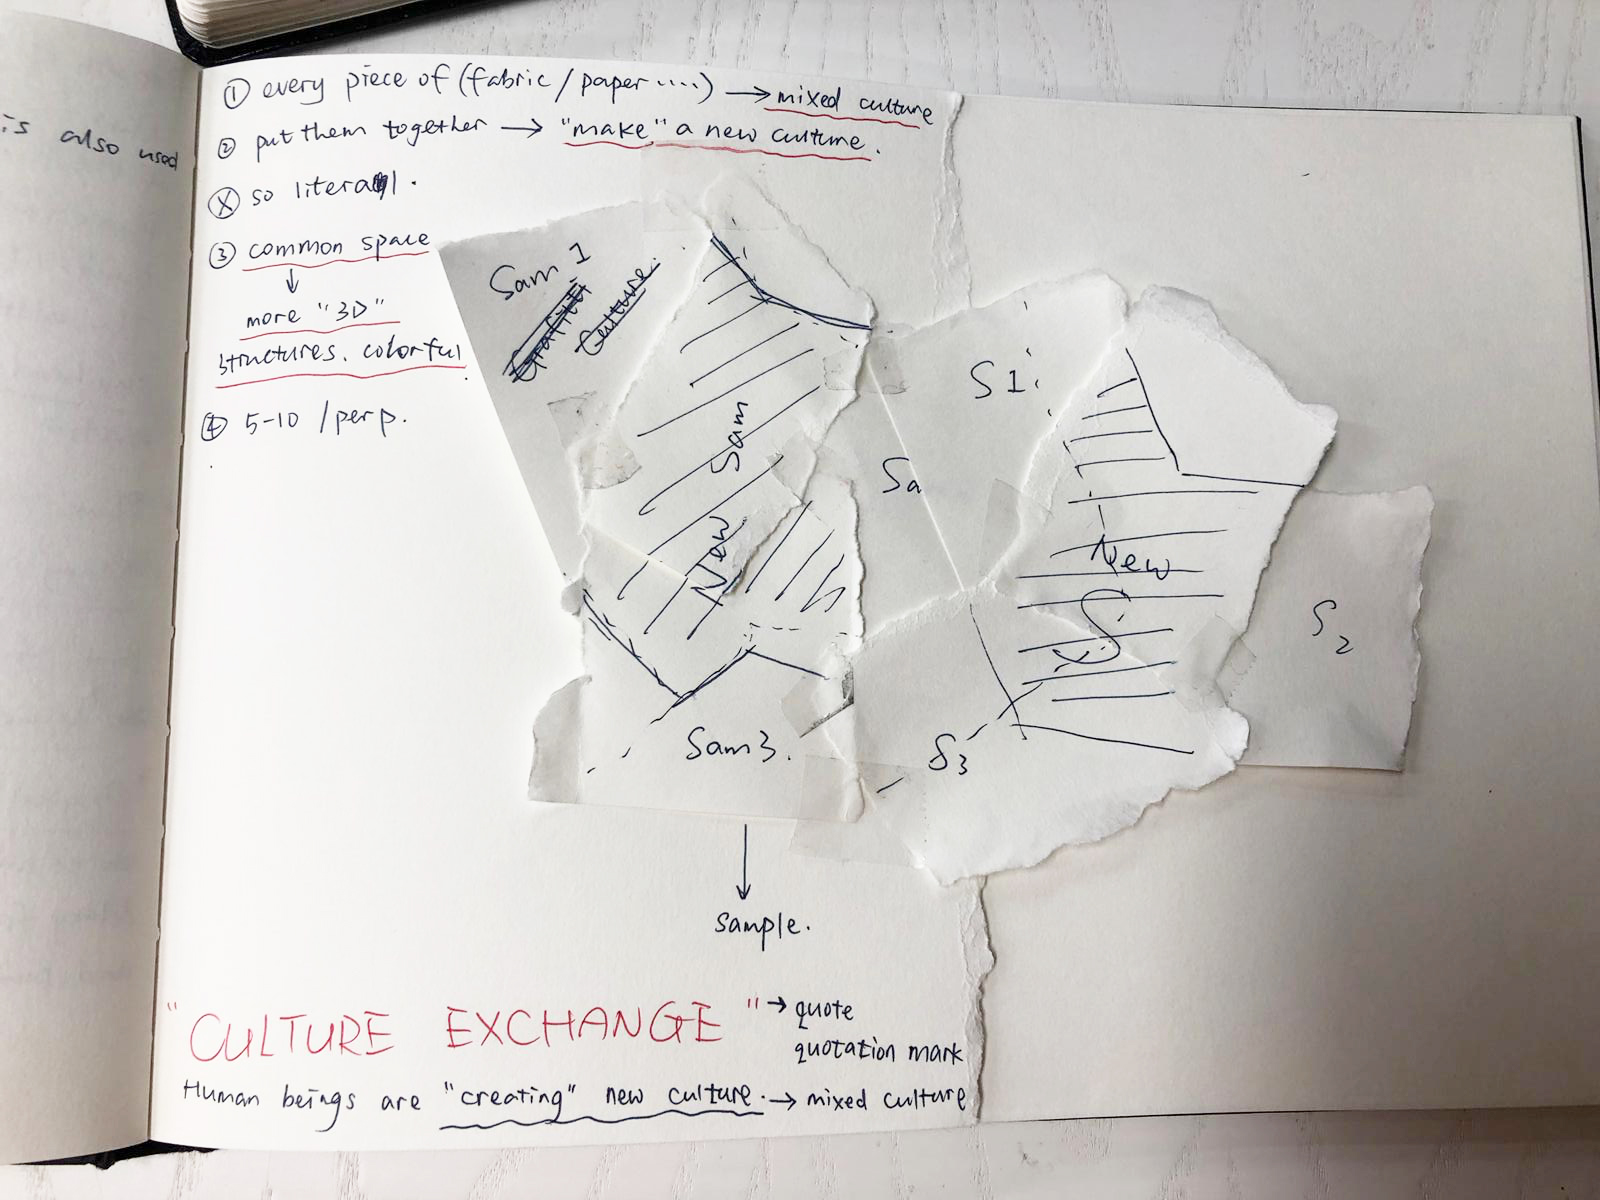 is also used
① every piece of (fabric / paper ....) → mixed culture
② put them together → "make" a new culture.
Ⓧ so literal.
③ common space
↓
more "3D"
structures. colorful.
④ 5-10 / perp.
Sam 1
Grafiti
Culture.
New Sam
Sam 3.
Sa
S1
New
S
S2
S3
↓
sample.
"CULTURE EXCHANGE" → quote
quotation mark
Human beings are "creating" new culture. → mixed culture